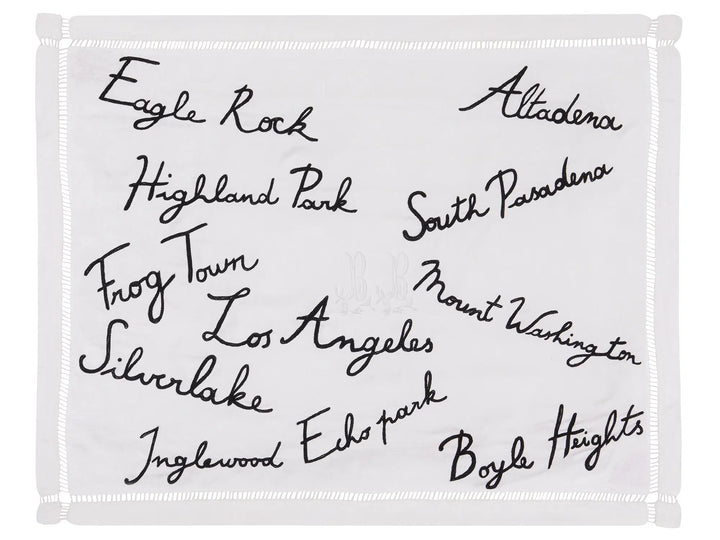 Eagle Rock
Altadena
Highland Park
South Pasadena
Frog Town
Mount Washington
Los Angeles
Silverlake
Echo park
Inglewood
Boyle Heights